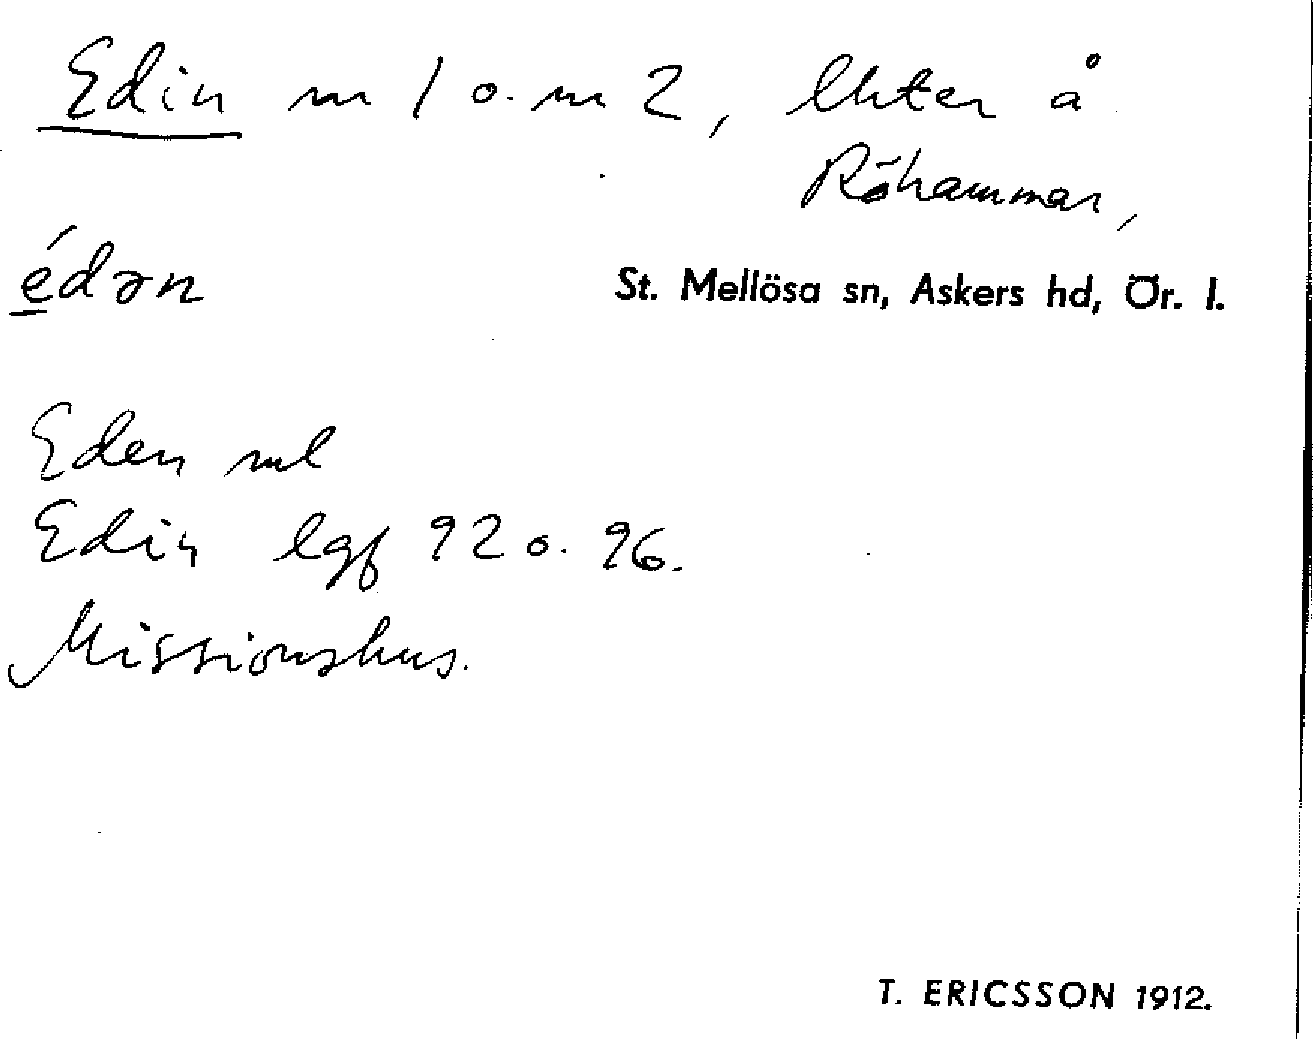 Edin m 1 o. m 2, lhter å
Röhammar,
édən
St. Mellösa sn, Askers hd, Ör. l.
Eden ml
Edin lgf 92 o. 96.
Missionshus.
T. ERICSSON 1912.